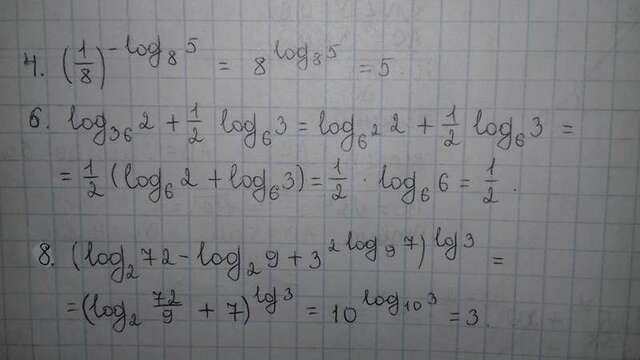 4. (1/8)^(-log₈5) = 8^(log₈5) = 5
6. log₃₆2 + 1/2 log₆3 = log₆²2 + 1/2 log₆3 =
= 1/2 (log₆2 + log₆3) = 1/2 · log₆6 = 1/2.
8. (log₂72 - log₂9 + 3^(2log₉7))^(lg3) =
= (log₂ 72/9 + 7)^(lg3) = 10^(log₁₀3) = 3.